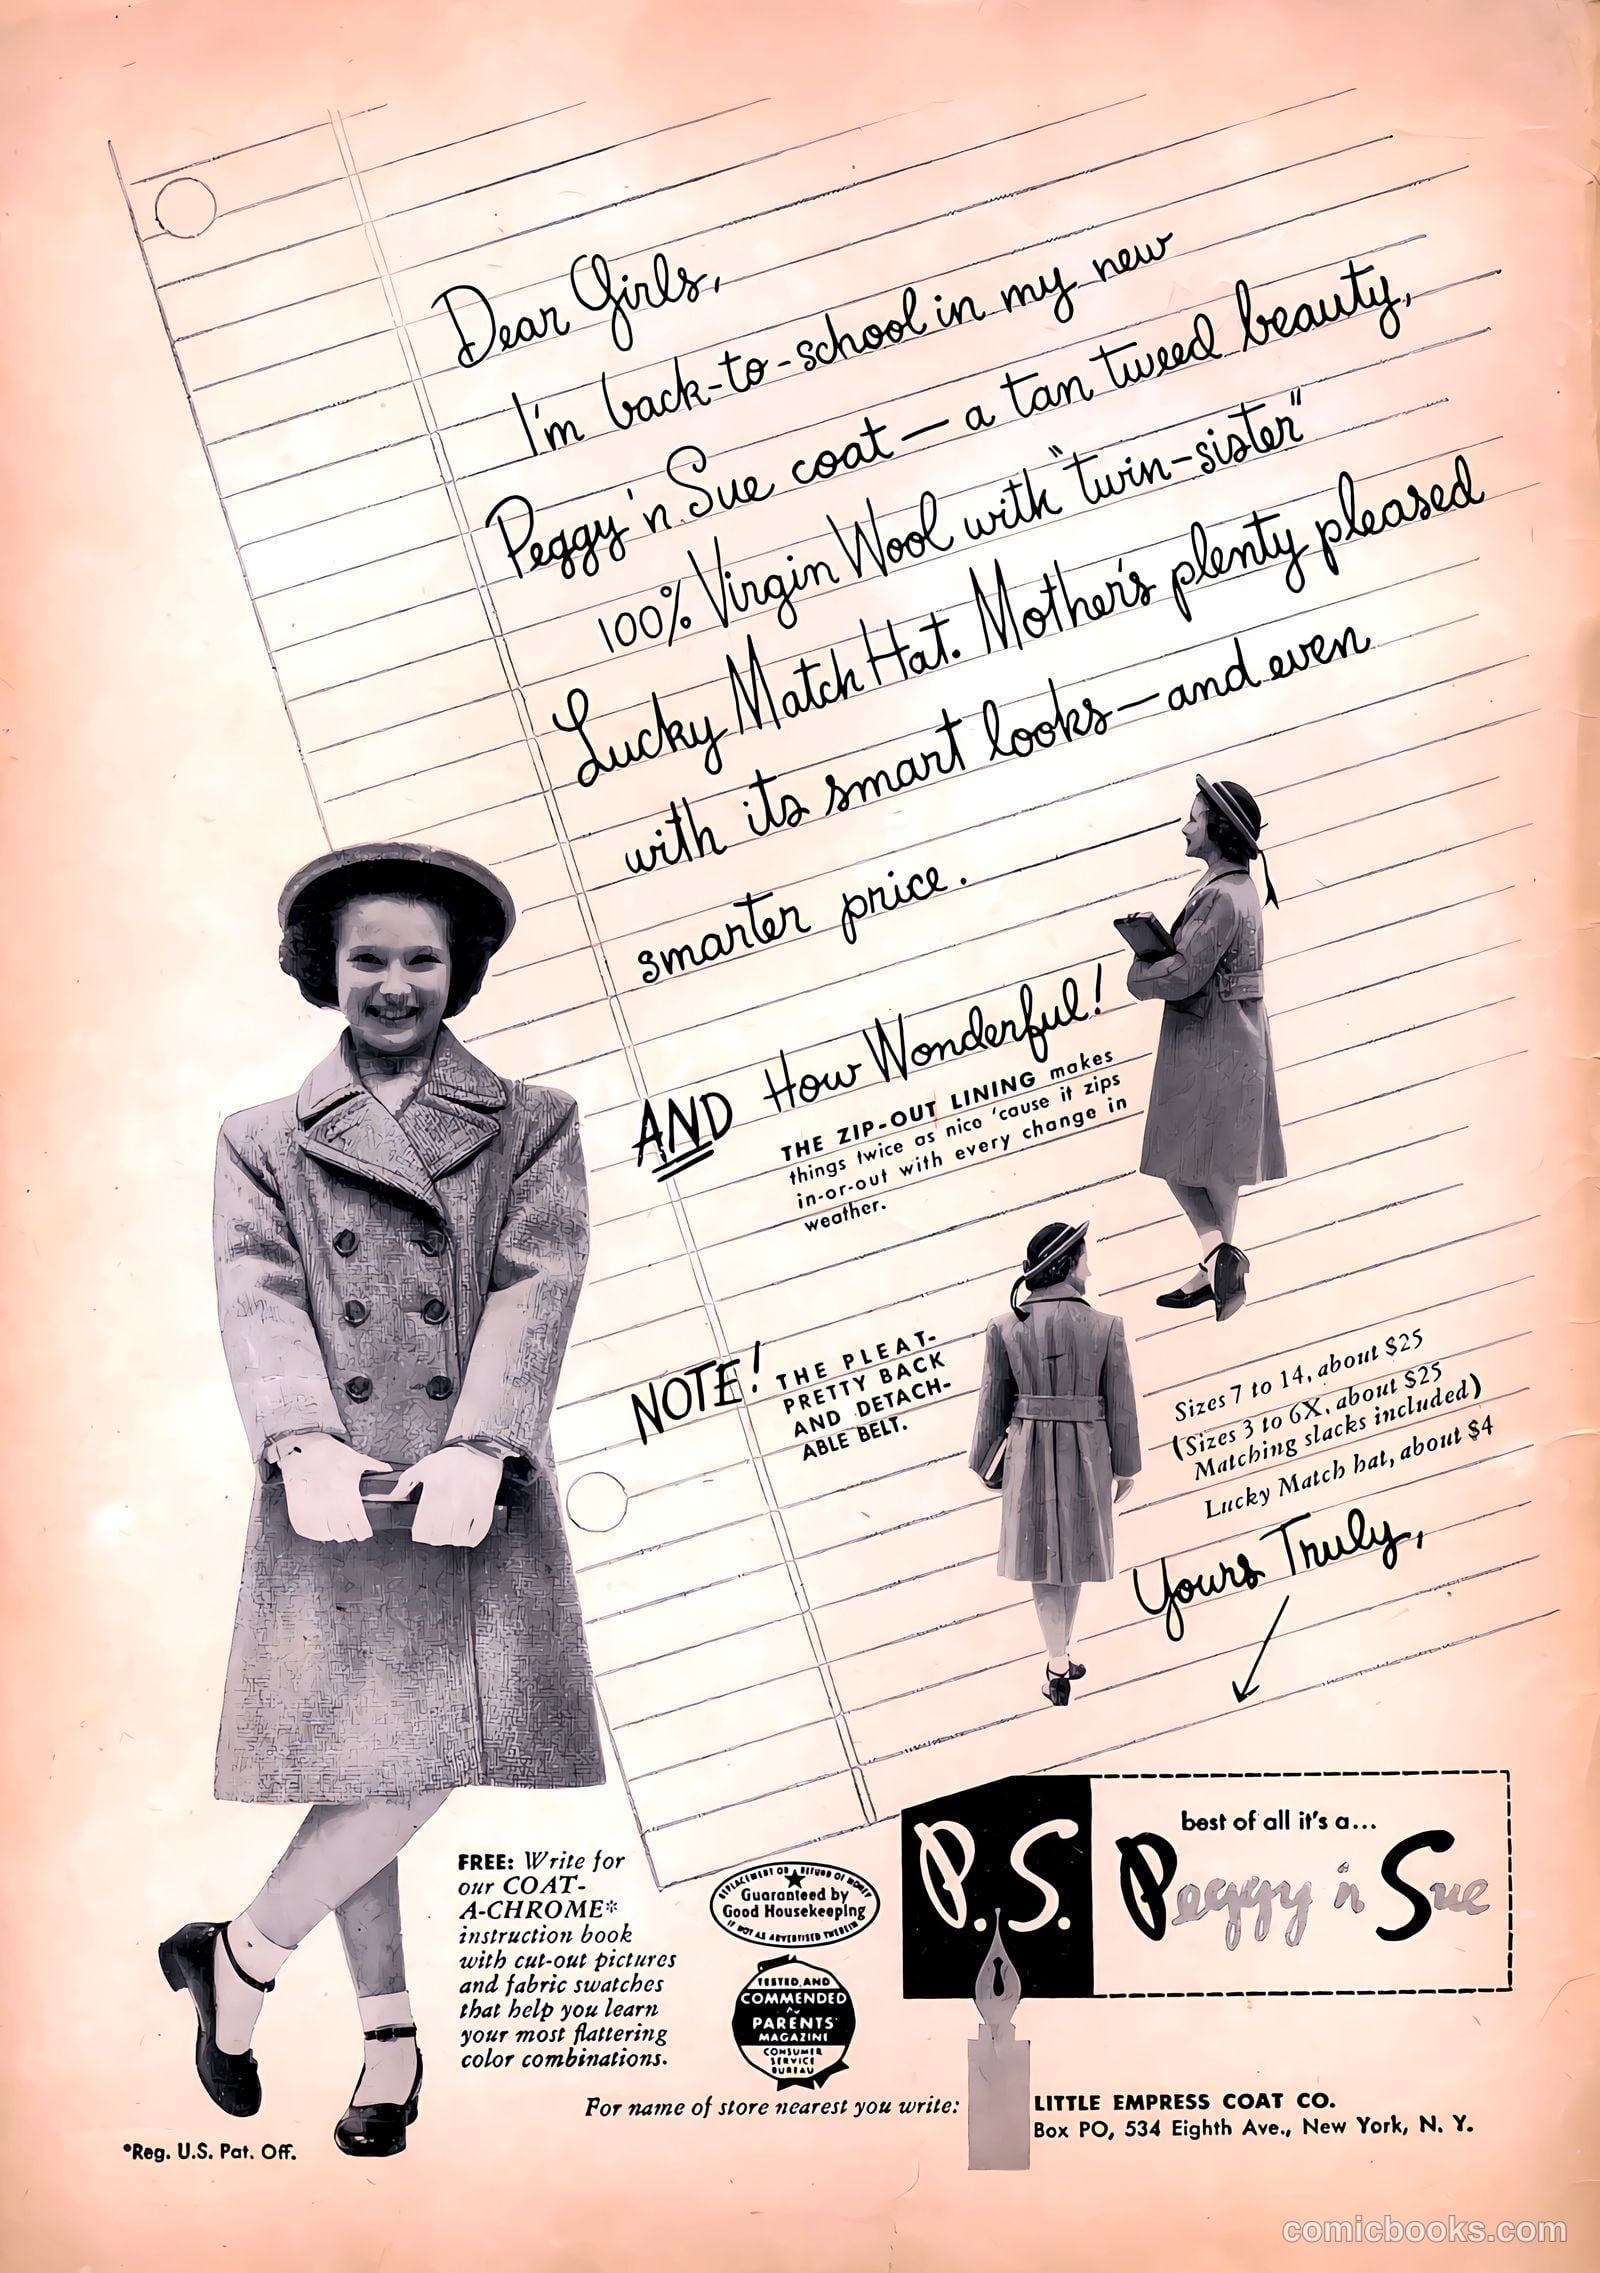 Dear Girls,
I'm back-to-school in my new
Peggy 'n Sue coat — a tan tweed beauty,
100% Virgin Wool with "twin-sister"
Lucky Match Hat. Mother's plenty pleased
with its smart looks — and even
smarter price.
AND How Wonderful!
THE ZIP-OUT LINING makes
things twice as nice 'cause it zips
in-or-out with every change in
weather.
NOTE! THE PLEAT-
PRETTY BACK
AND DETACH-
ABLE BELT.
Sizes 7 to 14, about $25
(Sizes 3 to 6X, about $25
Matching slacks included)
Lucky Match hat, about $4
Yours Truly,
P.S.
best of all it's a...
Peggy 'n Sue
FREE: Write for
our COAT-
A-CHROME*
instruction book
with cut-out pictures
and fabric swatches
that help you learn
your most flattering
color combinations.
REPLACEMENT OR REFUND OF MONEY
Guaranteed by
Good Housekeeping
IF NOT AS ADVERTISED THEREIN
TESTED AND
COMMENDED
by
PARENTS'
MAGAZINE
CONSUMER
SERVICE
BUREAU
For name of store nearest you write:
LITTLE EMPRESS COAT CO.
Box PO, 534 Eighth Ave., New York, N. Y.
*Reg. U.S. Pat. Off.
comicbooks.com